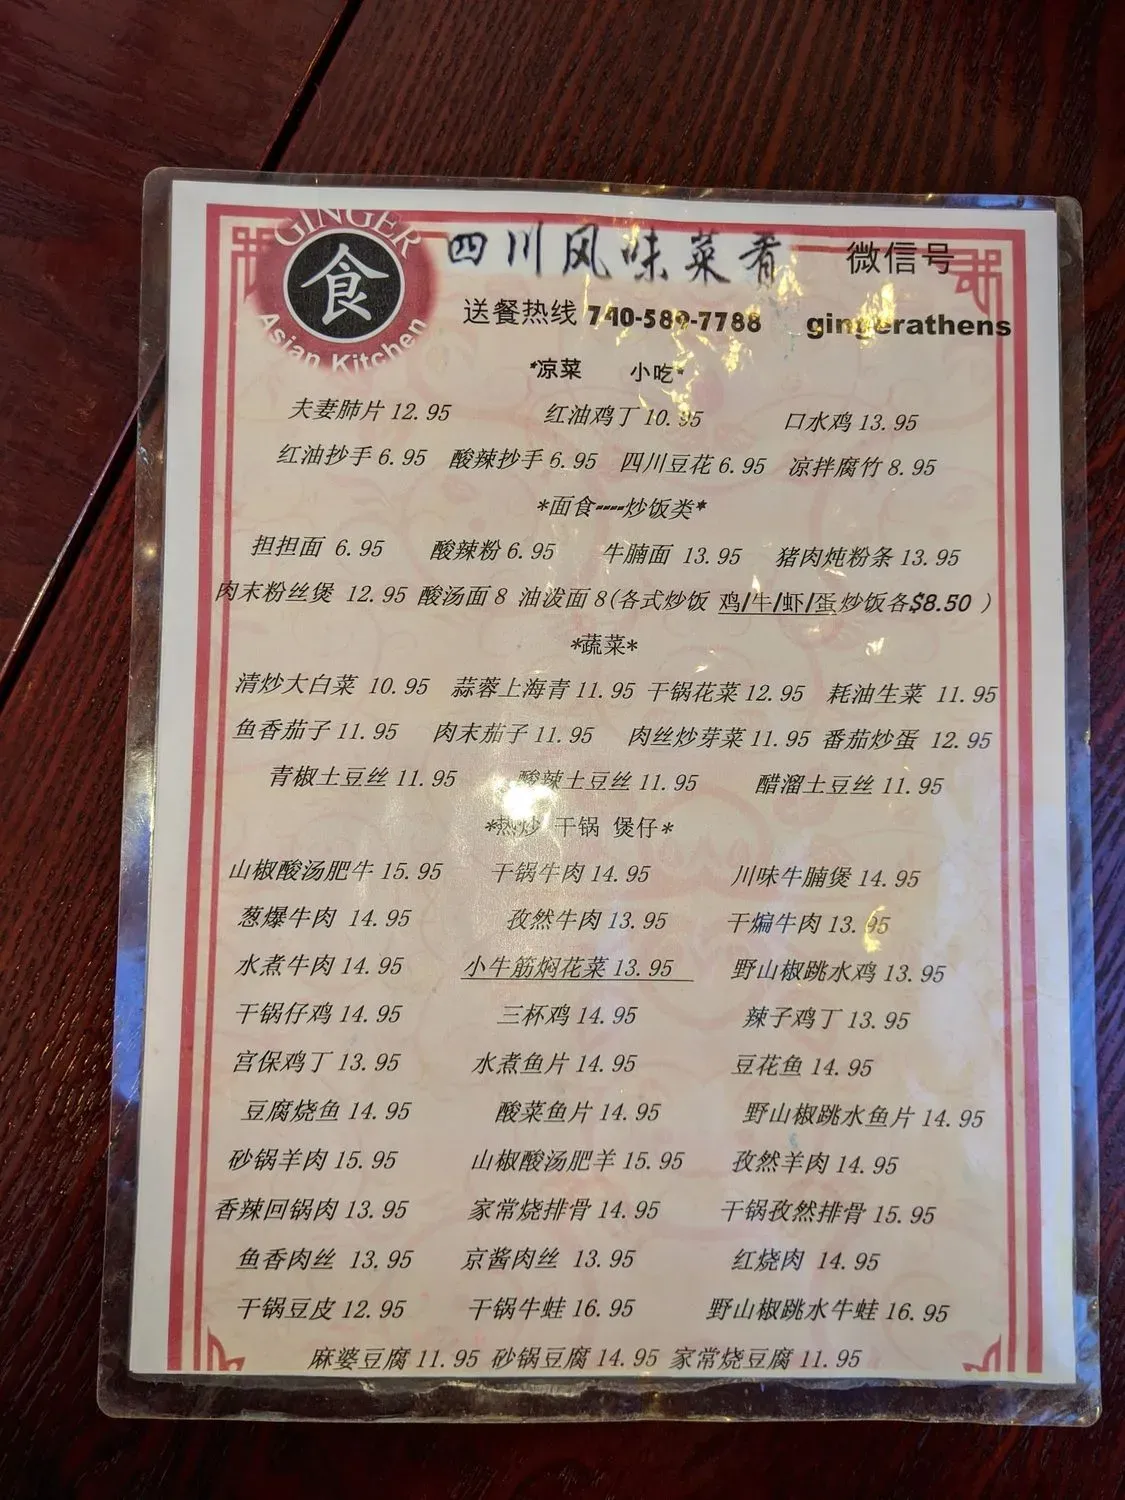 GINGER
食
Asian Kitchen
四川风味菜肴 微信号
送餐热线 740-589-7788 gingerathens
*凉菜 小吃*
夫妻肺片 12.95 红油鸡丁 10.95 口水鸡 13.95
红油抄手 6.95 酸辣抄手 6.95 四川豆花 6.95 凉拌腐竹 8.95
*面食----炒饭类*
担担面 6.95 酸辣粉 6.95 牛腩面 13.95 猪肉炖粉条 13.95
肉末粉丝煲 12.95 酸汤面 8 油泼面 8(各式炒饭 鸡/牛/虾/蛋炒饭各$8.50 )
*蔬菜*
清炒大白菜 10.95 蒜蓉上海青 11.95 干锅花菜 12.95 耗油生菜 11.95
鱼香茄子 11.95 肉末茄子 11.95 肉丝炒芽菜 11.95 番茄炒蛋 12.95
青椒土豆丝 11.95 酸辣土豆丝 11.95 醋溜土豆丝 11.95
*热炒 干锅 煲仔*
山椒酸汤肥牛 15.95 干锅牛肉 14.95 川味牛腩煲 14.95
葱爆牛肉 14.95 孜然牛肉 13.95 干煸牛肉 13.95
水煮牛肉 14.95 小牛筋焖花菜 13.95 野山椒跳水鸡 13.95
干锅仔鸡 14.95 三杯鸡 14.95 辣子鸡丁 13.95
宫保鸡丁 13.95 水煮鱼片 14.95 豆花鱼 14.95
豆腐烧鱼 14.95 酸菜鱼片 14.95 野山椒跳水鱼片 14.95
砂锅羊肉 15.95 山椒酸汤肥羊 15.95 孜然羊肉 14.95
香辣回锅肉 13.95 家常烧排骨 14.95 干锅孜然排骨 15.95
鱼香肉丝 13.95 京酱肉丝 13.95 红烧肉 14.95
干锅豆皮 12.95 干锅牛蛙 16.95 野山椒跳水牛蛙 16.95
麻婆豆腐 11.95 砂锅豆腐 14.95 家常烧豆腐 11.95